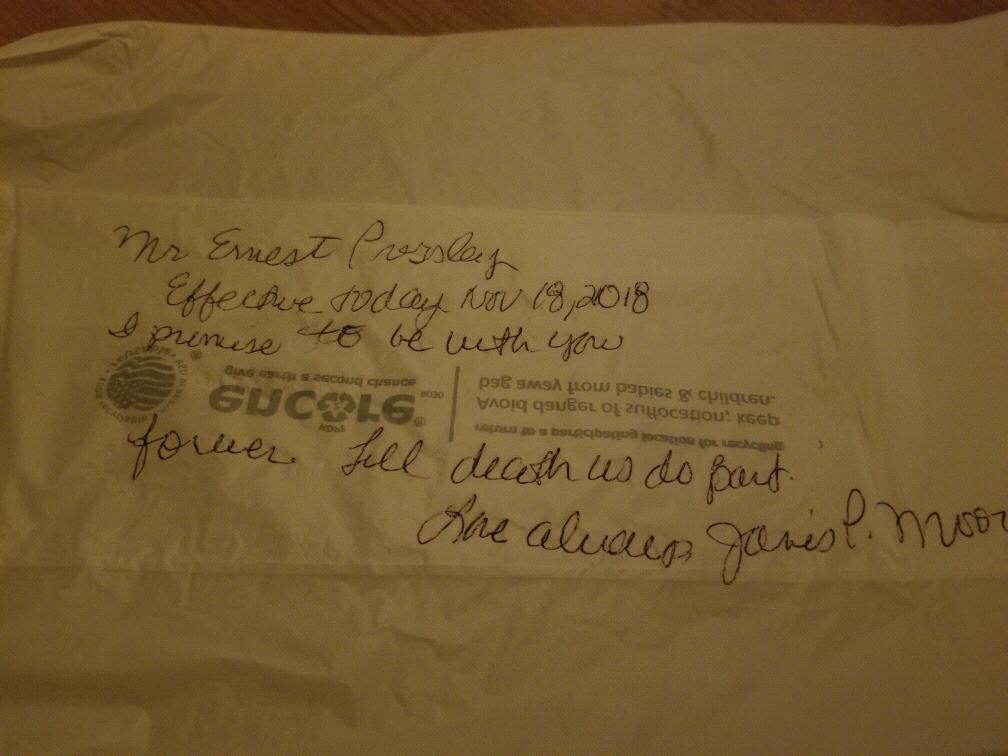 Mr Ernest Pressley
Effective today Nov 18, 2018
I promise to be with you
forever. Till death us do part.
Love always, Janis P. Moor
return to a participating location for recycling
Avoid danger of suffocation; keep
bag away from babies & children.
HDPE
encore®
8030
give earth a second chance